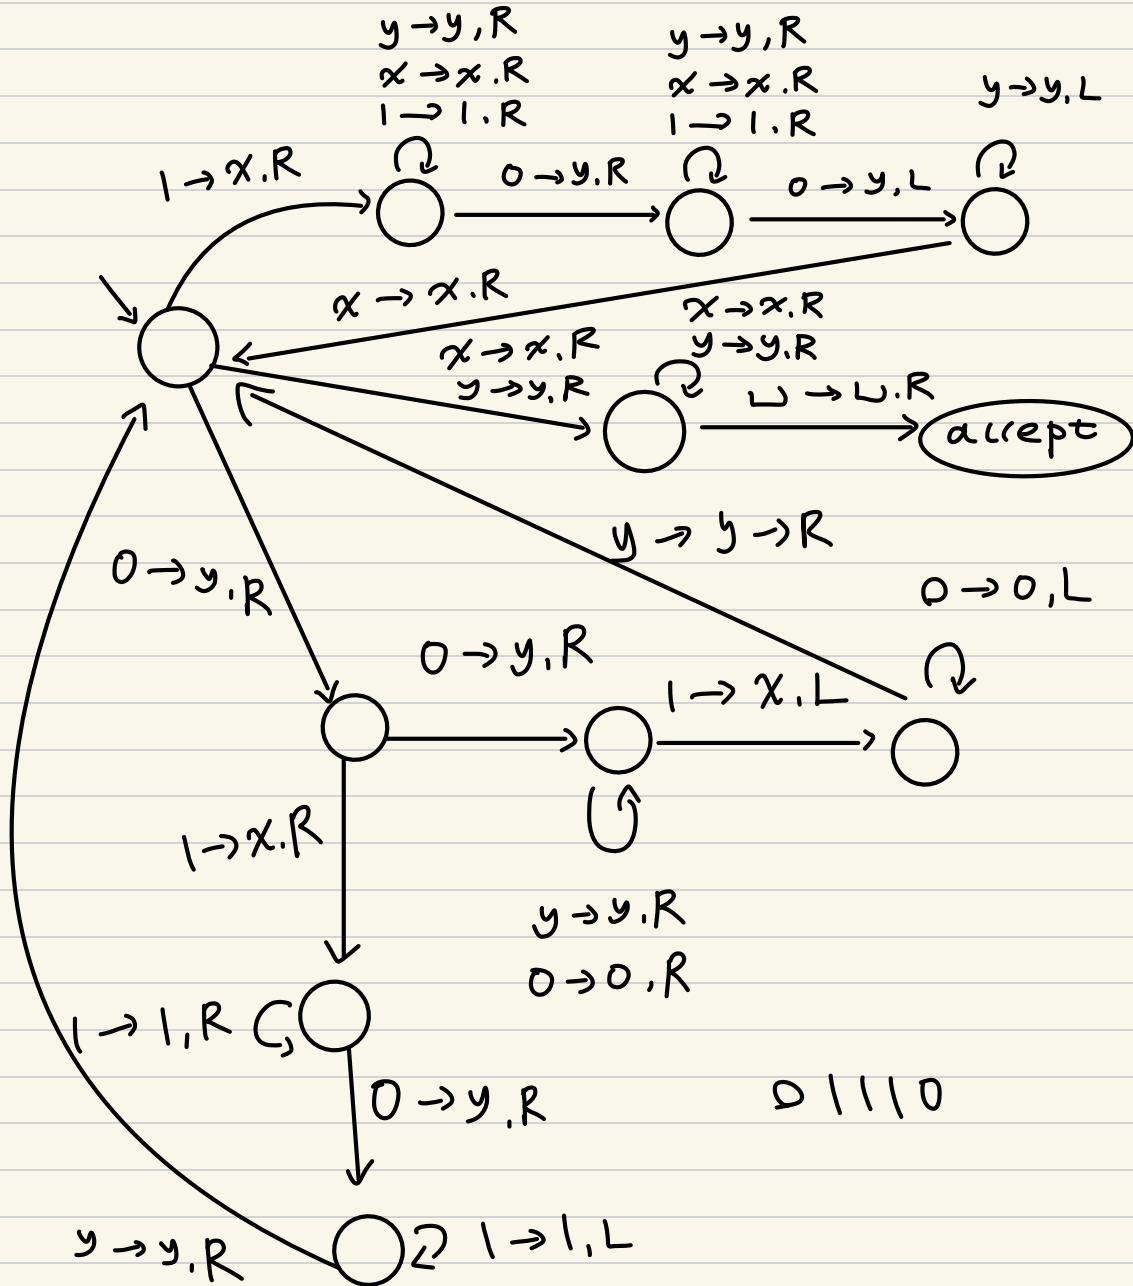 y → y, R
x → x. R
1 → 1. R
y → y, R
x → x. R
1 → 1. R
y → y, L
1 → x. R
0 → y, R
0 → y, L
x → x. R
x → x. R
y → y. R
x → x. R
y → y, R
⊔ → ⊔. R
accept
y → y → R
0 → y, R
0 → 0, L
0 → y, R
1 → x, L
1 → x. R
y → y. R
0 → 0, R
1 → 1, R
0 → y, R
0 1 1 1 0
y → y, R
1 → 1, L